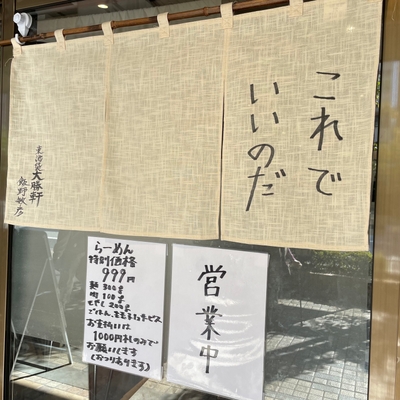 これで
いいのだ
東池袋大勝軒
飯野敏彦
らーめん
特別価格
999円
麺 300g
肉 100g
もやし 200g
ごはん、生玉子サービス
お支払いは
1000円札のみで
お願いします
(おつりあります)
営業中